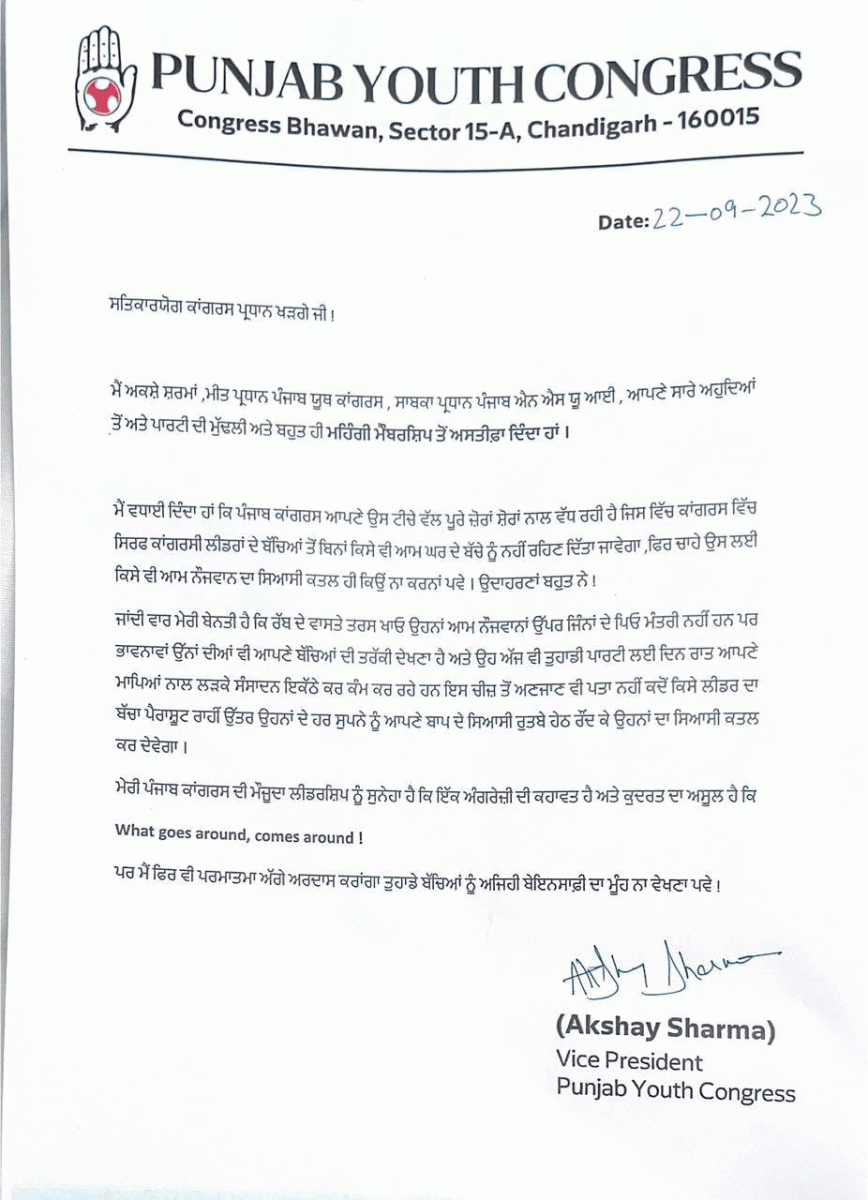 PUNJAB YOUTH CONGRESS
Congress Bhawan, Sector 15-A, Chandigarh - 160015
Date: 22-09-2023
ਸਤਿਕਾਰਯੋਗ ਕਾਂਗਰਸ ਪ੍ਰਧਾਨ ਖੜਗੇ ਜੀ !
ਮੈਂ ਅਕਸ਼ੇ ਸ਼ਰਮਾਂ ,ਮੀਤ ਪ੍ਰਧਾਨ ਪੰਜਾਬ ਯੂਥ ਕਾਂਗਰਸ , ਸਾਬਕਾ ਪ੍ਰਧਾਨ ਪੰਜਾਬ ਐਨ ਐਸ ਯੂ ਆਈ , ਆਪਣੇ ਸਾਰੇ ਅਹੁਦਿਆਂ
ਤੋਂ ਅਤੇ ਪਾਰਟੀ ਦੀ ਮੁੱਢਲੀ ਅਤੇ ਬਹੁਤ ਹੀ ਮਹਿੰਗੀ ਮੈਂਬਰਸ਼ਿਪ ਤੋਂ ਅਸਤੀਫ਼ਾ ਦਿੰਦਾ ਹਾਂ ।
ਮੈਂ ਵਧਾਈ ਦਿੰਦਾ ਹਾਂ ਕਿ ਪੰਜਾਬ ਕਾਂਗਰਸ ਆਪਣੇ ਉਸ ਟੀਚੇ ਵੱਲ ਪੂਰੇ ਜ਼ੋਰਾਂ ਸ਼ੋਰਾਂ ਨਾਲ ਵੱਧ ਰਹੀ ਹੈ ਜਿਸ ਵਿੱਚ ਕਾਂਗਰਸ ਵਿੱਚ
ਸਿਰਫ ਕਾਂਗਰਸੀ ਲੀਡਰਾਂ ਦੇ ਬੱਚਿਆਂ ਤੋਂ ਬਿਨਾਂ ਕਿਸੇ ਵੀ ਆਮ ਘਰ ਦੇ ਬੱਚੇ ਨੂੰ ਨਹੀਂ ਰਹਿਣ ਦਿੱਤਾ ਜਾਵੇਗਾ ,ਫਿਰ ਚਾਹੇ ਉਸ ਲਈ
ਕਿਸੇ ਵੀ ਆਮ ਨੌਜਵਾਨ ਦਾ ਸਿਆਸੀ ਕਤਲ ਹੀ ਕਿਉਂ ਨਾ ਕਰਨਾਂ ਪਵੇ । ਉਦਾਹਰਣਾਂ ਬਹੁਤ ਨੇ !
ਜਾਂਦੀ ਵਾਰ ਮੇਰੀ ਬੇਨਤੀ ਹੈ ਕਿ ਰੱਬ ਦੇ ਵਾਸਤੇ ਤਰਸ ਖਾਓ ਉਹਨਾਂ ਆਮ ਨੌਜਵਾਨਾਂ ਉੱਪਰ ਜਿੰਨਾਂ ਦੇ ਪਿਓ ਮੰਤਰੀ ਨਹੀਂ ਹਨ ਪਰ
ਭਾਵਨਾਵਾਂ ਉੱਨਾਂ ਦੀਆਂ ਵੀ ਆਪਣੇ ਬੱਚਿਆਂ ਦੀ ਤਰੱਕੀ ਦੇਖਣਾ ਹੈ ਅਤੇ ਉਹ ਅੱਜ ਵੀ ਤੁਹਾਡੀ ਪਾਰਟੀ ਲਈ ਦਿਨ ਰਾਤ ਆਪਣੇ
ਮਾਪਿਆਂ ਨਾਲ ਲੜਕੇ ਸੰਸਾਦਨ ਇਕੱਠੇ ਕਰ ਕੰਮ ਕਰ ਰਹੇ ਹਨ ਇਸ ਚੀਜ਼ ਤੋਂ ਅਣਜਾਣ ਵੀ ਪਤਾ ਨਹੀਂ ਕਦੋਂ ਕਿਸੇ ਲੀਡਰ ਦਾ
ਬੱਚਾ ਪੈਰਾਸ਼ੂਟ ਰਾਹੀਂ ਉੱਤਰ ਉਹਨਾਂ ਦੇ ਹਰ ਸੁਪਨੇ ਨੂੰ ਆਪਣੇ ਬਾਪ ਦੇ ਸਿਆਸੀ ਰੁਤਬੇ ਹੇਠ ਰੌਂਦ ਕੇ ਉਹਨਾਂ ਦਾ ਸਿਆਸੀ ਕਤਲ
ਕਰ ਦੇਵੇਗਾ ।
ਮੇਰੀ ਪੰਜਾਬ ਕਾਂਗਰਸ ਦੀ ਮੌਜੂਦਾ ਲੀਡਰਸ਼ਿਪ ਨੂੰ ਸੁਨੇਹਾ ਹੈ ਕਿ ਇੱਕ ਅੰਗਰੇਜ਼ੀ ਦੀ ਕਹਾਵਤ ਹੈ ਅਤੇ ਕੁਦਰਤ ਦਾ ਅਸੂਲ ਹੈ ਕਿ
What goes around, comes around !
ਪਰ ਮੈਂ ਫਿਰ ਵੀ ਪਰਮਾਤਮਾ ਅੱਗੇ ਅਰਦਾਸ ਕਰਾਂਗਾ ਤੁਹਾਡੇ ਬੱਚਿਆਂ ਨੂੰ ਅਜਿਹੀ ਬੇਇਨਸਾਫ਼ੀ ਦਾ ਮੂੰਹ ਨਾ ਵੇਖਣਾ ਪਵੇ !
Akshay Sharma
(Akshay Sharma)
Vice President
Punjab Youth Congress